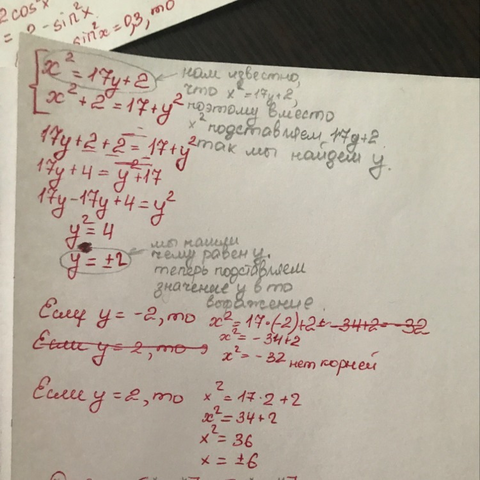 2 cos²x
= 2 - sin²x
sin²x = 0,3, то
x² = 17y + 2
x² + 2 = 17 + y²
нам известно,
что x² = 17y + 2,
поэтому вместо
x² подставляем 17y + 2
так мы найдем y.
17y + 2 + 2 = 17 + y²
17y + 4 = y² + 17
17y - 17y + 4 = y²
y² = 4
y = ±2
мы нашли
чему равен y.
теперь подставляем
значение y в то
выражение.
Если y = -2, то x² = 17·(-2) + 2 = -34 + 2 = -32
x² = -34 + 2
Если y = 2, то
x² = -32 нет корней
Если y = 2, то x² = 17·2 + 2
x² = 34 + 2
x² = 36
x = ±6